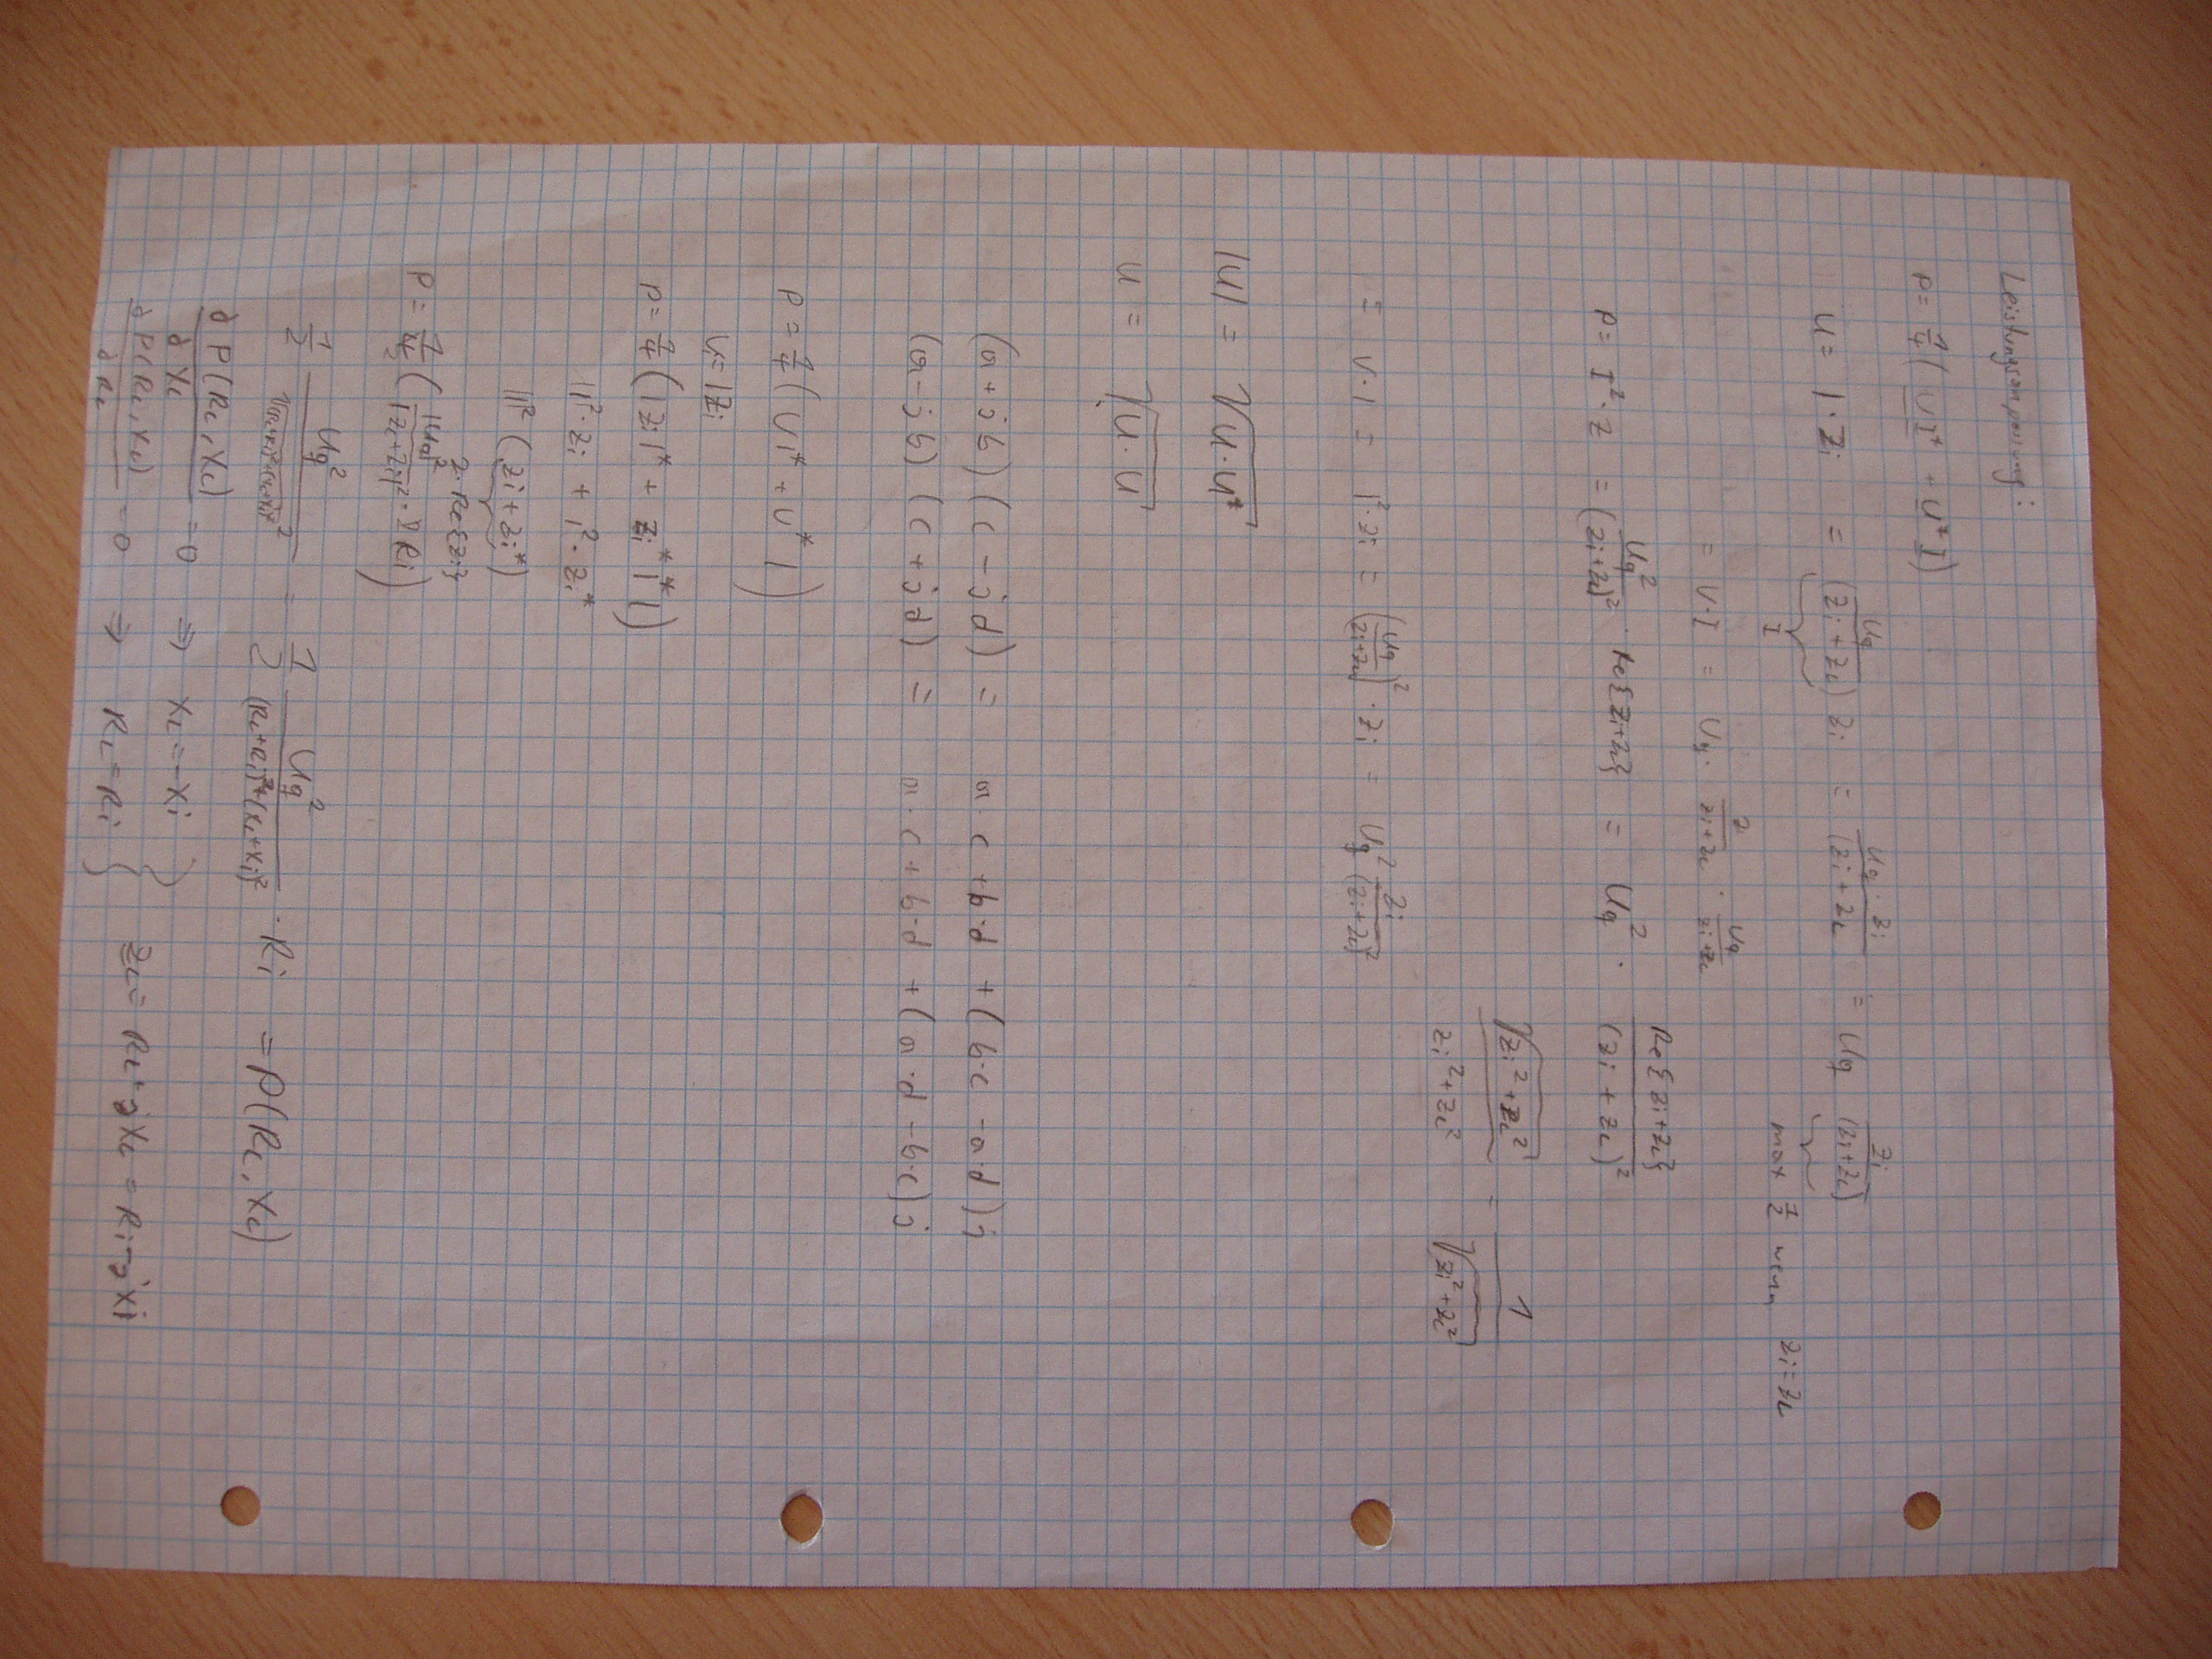 Leistungsanpassung:
P = 1/4 ( U I* + U* I )
U = I · Zi = Uq/(Zi + ZL) Zi = Uq · Zi/(Zi + ZL) = Uq Zi/(Zi+ZL)
I
max 1/2 wenn Zi = ZL
= U · I = Uq · Zi/(Zi+ZL) · Uq/(Zi+ZL)
P = I² · Z = Uq²/(Zi+ZL)² · Re{Zi+ZL} = Uq² · Re{Zi+ZL}/(Zi + ZL)²
√(Zi² + ZL²)/(Zi² + ZL²) = 1/√(Zi² + ZL²)
= U · I = I² · Zi = (Uq/(Zi+ZL))² · Zi = Uq² Zi/(Zi+ZL)²
|U| = √(U · U*)
U = √(U · U)
(a + jb) (c - jd) = a · c + b · d + (b · c - a · d) j
(a - jb) (c + jd) = a · c + b · d + (a · d - b · c) j
P = 1/4 ( U I* + U* I )
U = I Zi
P = 1/4 ( I Zi I* + Zi* I* I )
|I|² · Zi + I² · Zi*
|I|² ( Zi + Zi* )
2 · Re{Zi}
P = 1/2 ( |Uq|²/|ZL+Zi|² · Ri )
1/2 Uq²/√((RL+Ri)²+(XL+Xi)²)² = 1/2 Uq²/((RL+Ri)²+(XL+Xi)²) · Ri = P(RL, XL)
∂P(RL, XL)/∂XL = 0 ⇒ XL = -Xi
∂P(RL, XL)/∂RL = 0 ⇒ RL = Ri } ZL = RL + jXL = Ri - jXi